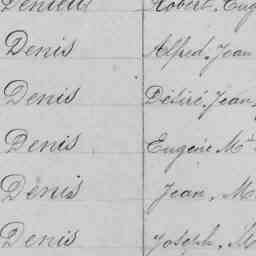 Robert, Eug
Denis Alfred, Jean
Denis Désiré, Jean,
Denis Eugène M
Denis Jean, M
Denis Joseph, M